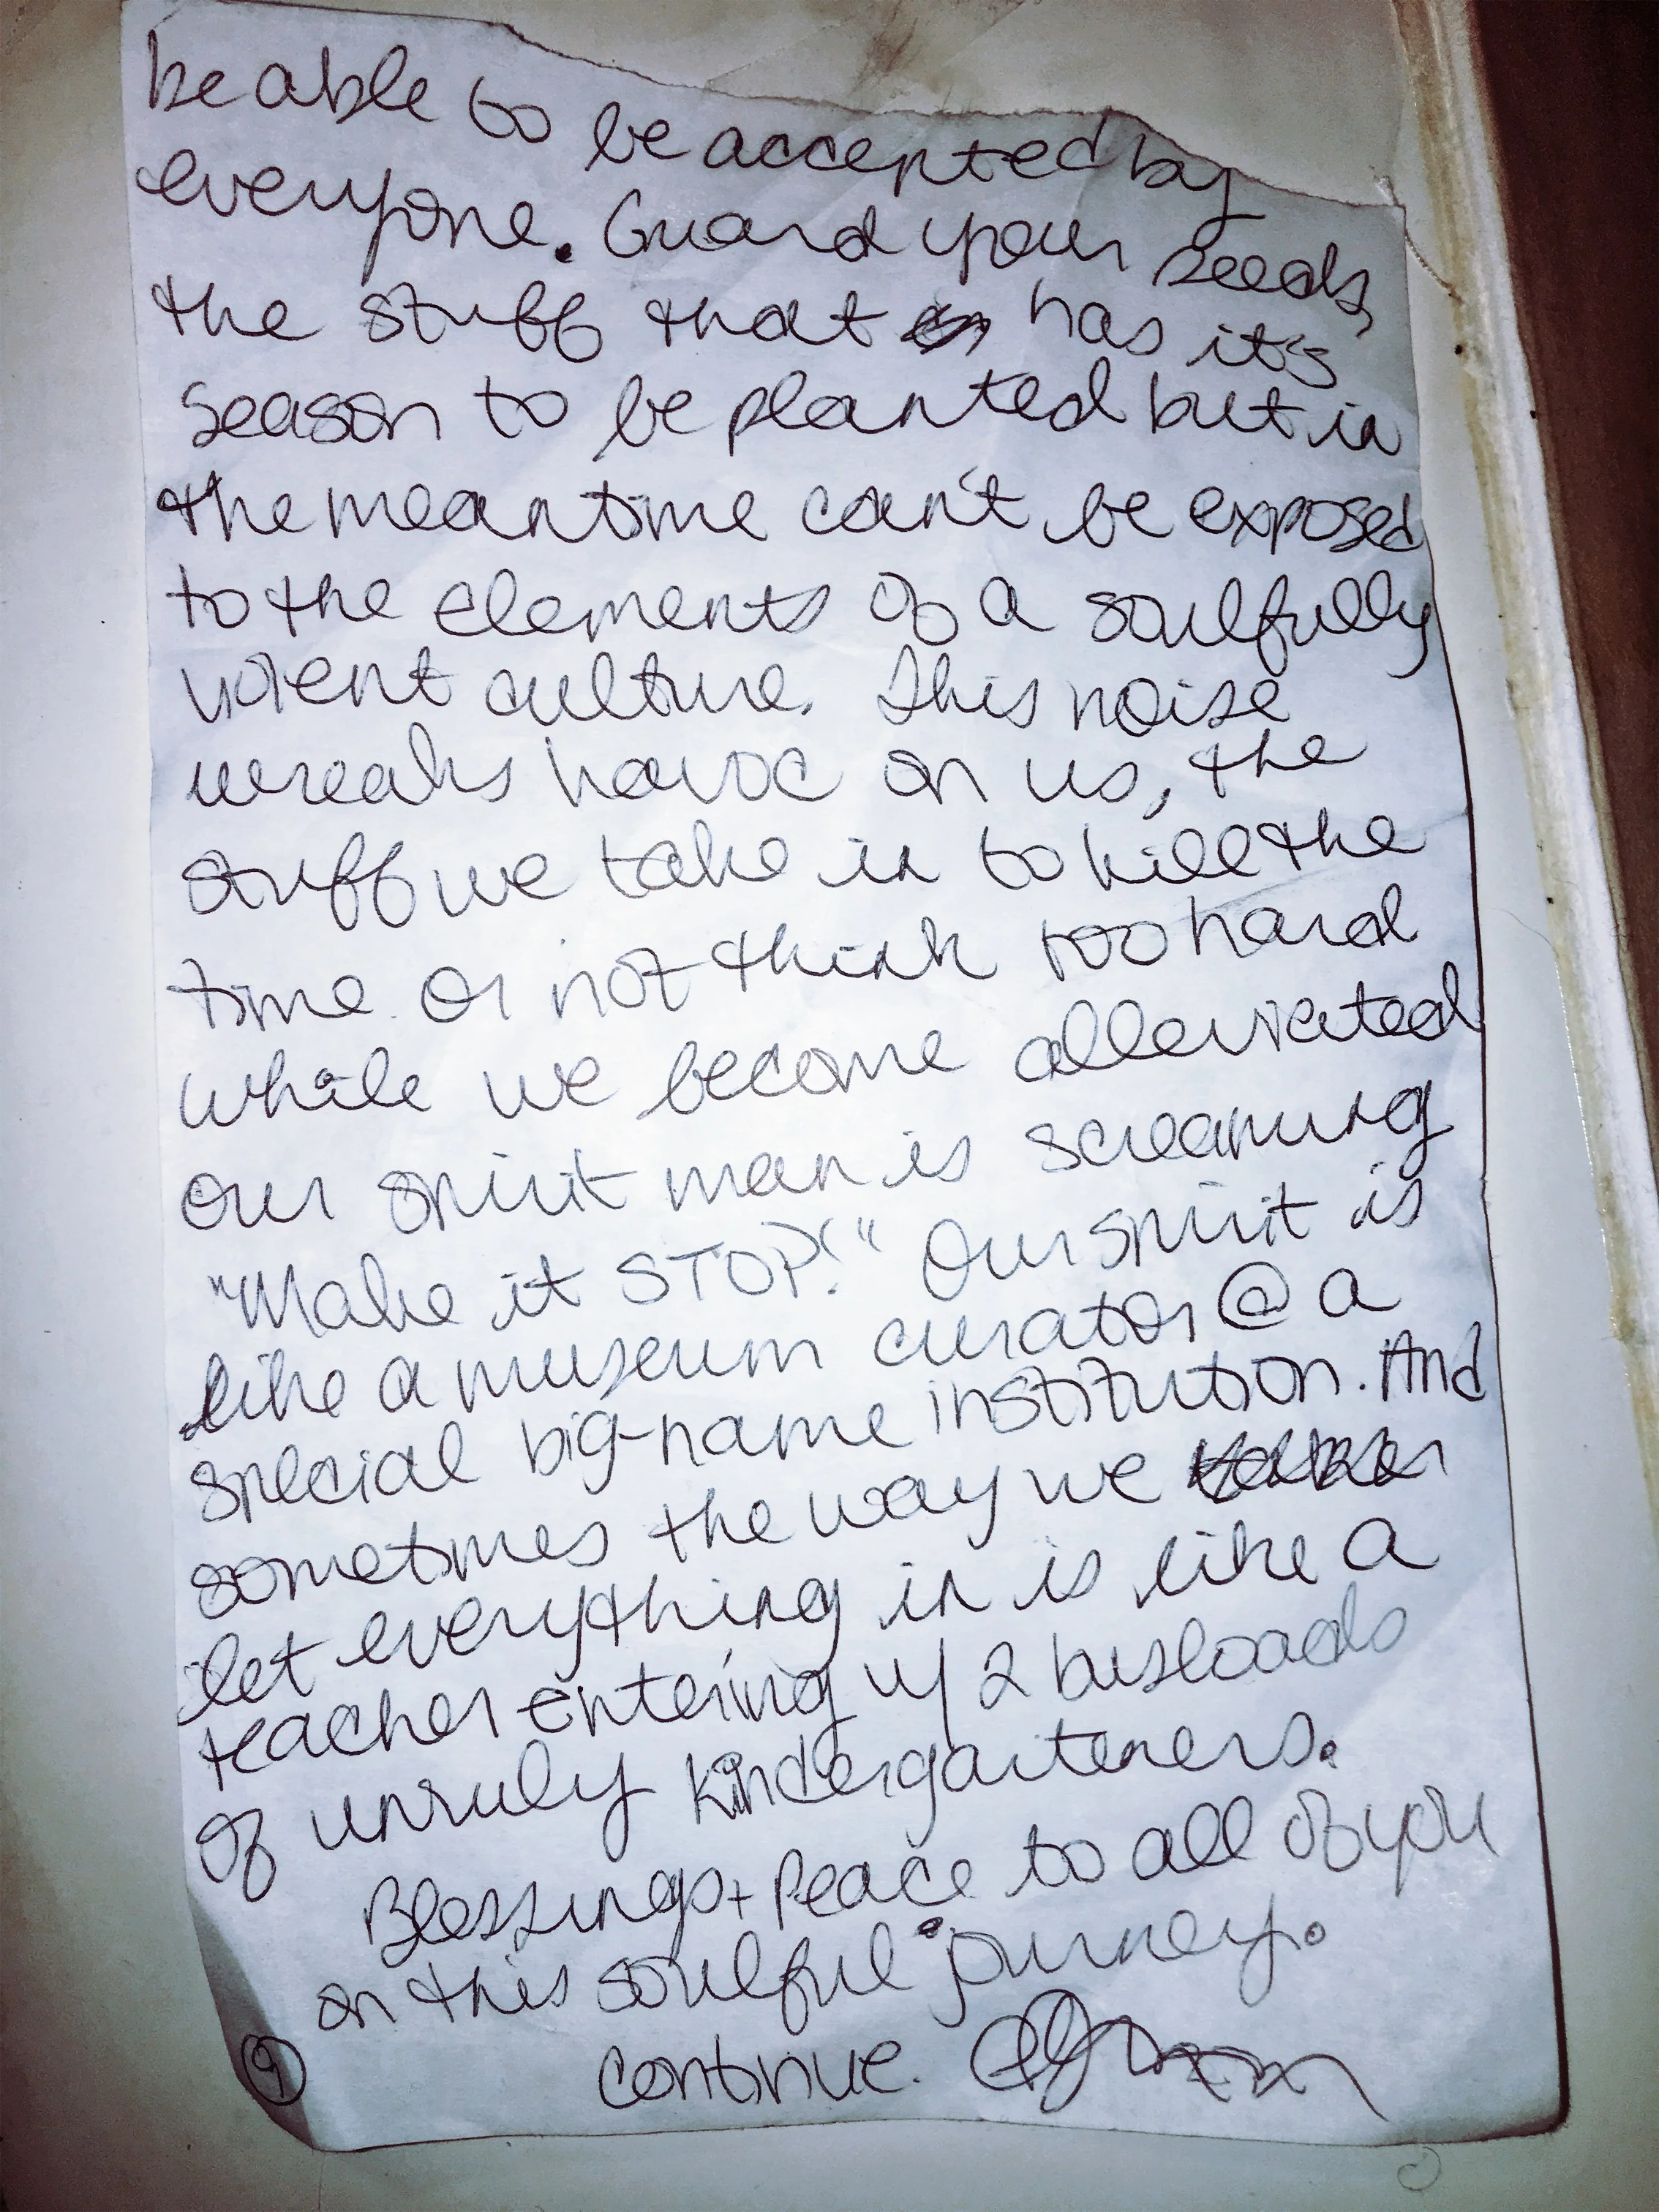 be able to be accepted by
everyone. Guard your seeds,
the stuff that has it's
season to be planted but in
the meantime can't be exposed
to the elements of a soulfully
violent culture. This noise
wreaks havoc on us, the
stuff we take in to kill the
time or not think too hard
while we become alleviated
our spirit man is screaming
"Make it STOP!" Our spirit is
like a museum curator @ a
special big-name institution. And
sometimes the way we
let everything in is like a
teacher entering w/ 2 busloads
of unruly kindergarteners.
Blessings + Peace to all of you
on this soulful journey.
continue.
9